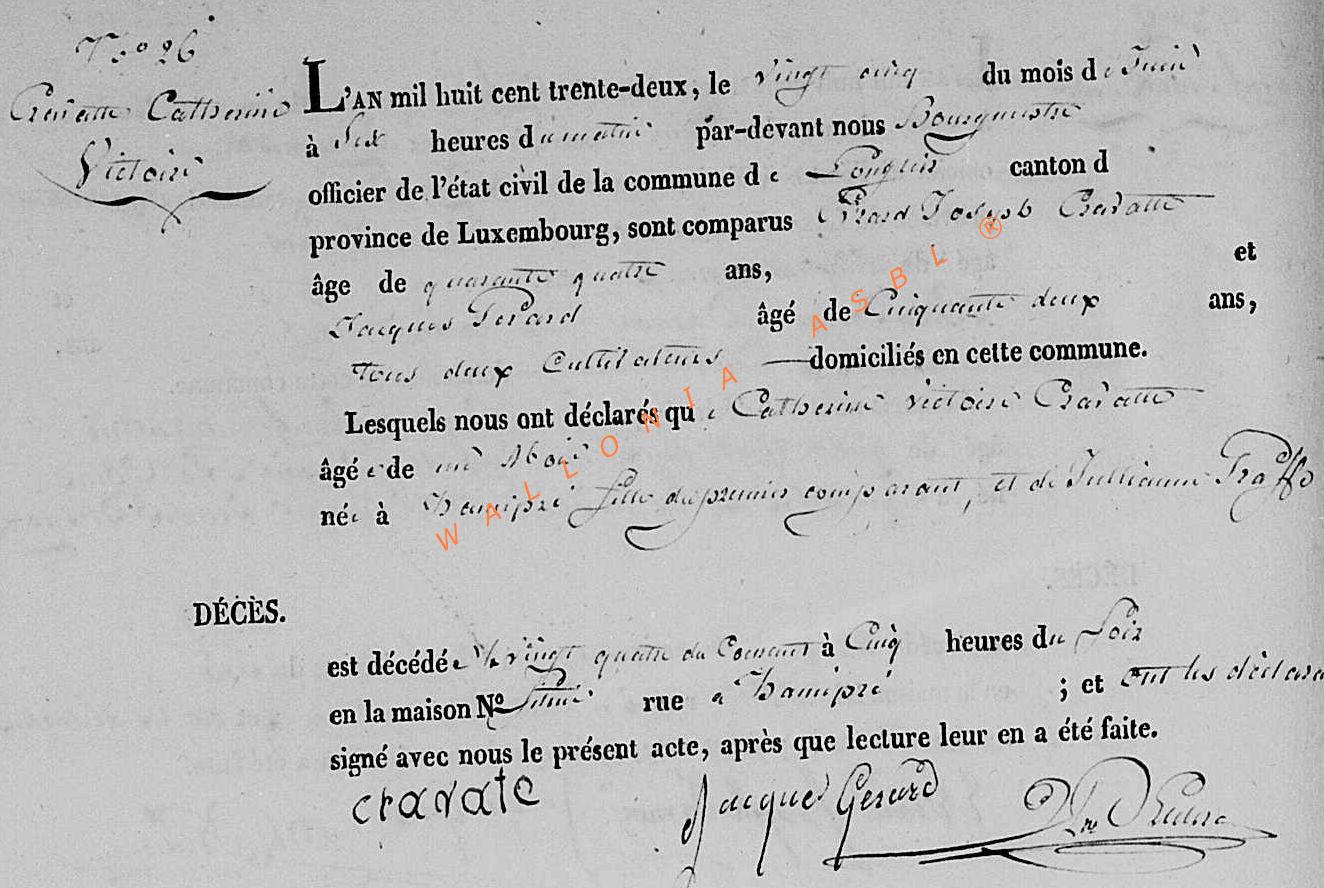 N.o 26
Cravatte Catherine
Victoire
L'AN mil huit cent trente-deux, le vingt cinq du mois de Juin
à Six heures du matin par-devant nous Bourgmestre
officier de l'état civil de la commune de Longlier canton d
province de Luxembourg, sont comparus Gérard Joseph Cravatte
âge de quarante quatre ans, et
Jacques Gerard âgé de Cinquante deux ans,
tous deux Cultivateurs domiciliés en cette commune.
Lesquels nous ont déclarés que Catherine victoire Cravatte
âgée de un Mois
née à hamipré fille du premier comparant, et de Julienne
DÉCÈS.
est décédée le vingt quatre du Courant à Cinq heures du Soir
en la maison No Située rue a hamipré ; et ont les déclara
signé avec nous le présent acte, après que lecture leur en a été faite.
cravate Jacques Gerard
WALLONIA ASBL ®